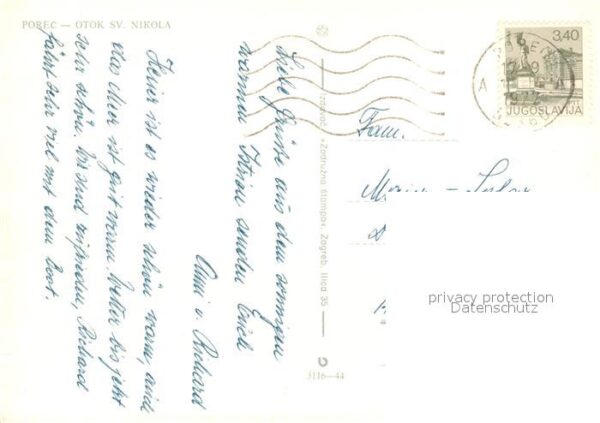 POREČ — OTOK SV. NIKOLA
Liebe Grüße aus dem sonnigen
warmen Istrien senden Euch
Anni u Richard
Heuer ist es wieder schön warm, auch
das Meer ist gut warm. Wetter bis jetzt
sehr schön. Wir sind zufrieden, Richard
fährt sehr viel mit dem Boot.
»Zadružna štampa«, Zagreb, Ilica 35
3116—44
3,40
JUGOSLAVIJA
Fam.
privacy protection
Datenschutz